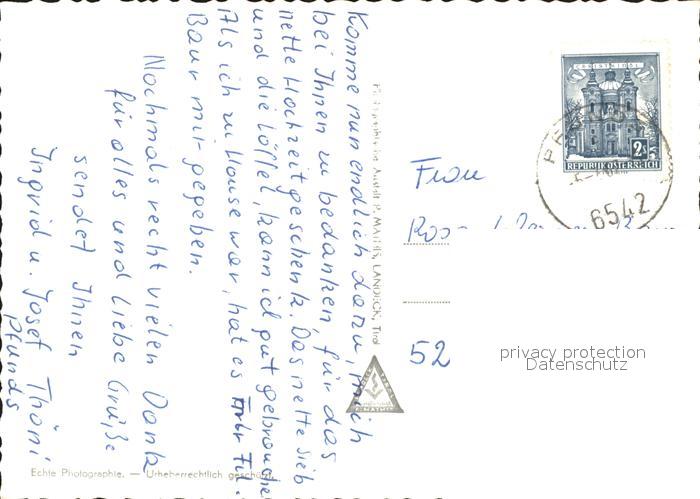 Komme nun endlich dazu, mich
bei Ihnen zu bedanken, für das
nette Hochzeitgeschenk. Das nette Sieb
und die Löffel, kann ich gut gebrauchen
Als ich zu Hause war, hat es Frl.
Baur mit gegeben.
Nochmals recht vielen Dank
für alles und liebe Grüße
sendet Ihnen
Ingrid u. Josef Thöni
Pfunds
Echte Photographie. — Urheberrechtlich geschützt
P. MATHIS, LANDECK, Tirol
CHRISTKINDL
2S
REPUBLIK ÖSTERREICH
6542
Frau
52
privacy protection
Datenschutz